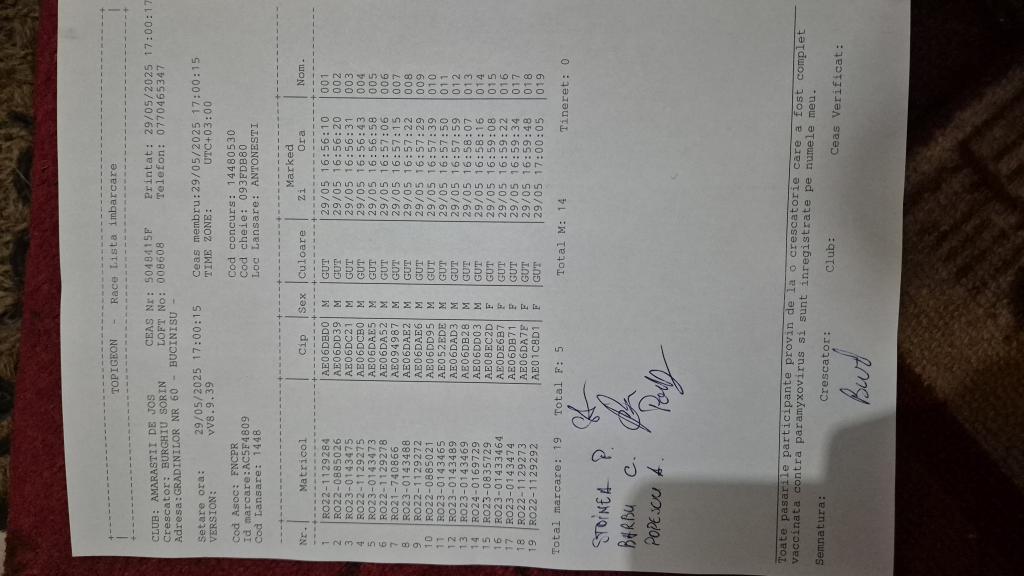 TOPIGEON - Race Lista imbarcare
CLUB: AMARASTII DE JOS CEAS Nr: 5048415F Printat: 29/05/2025 17:00:17
Crescator: BURGHIU SORIN LOFT No: 008608 Telefon: 0770465347
Adresa:GRADINILOR NR 60 - BUCINISU -
Setare ora: 29/05/2025 17:00:15 Ceas membru:29/05/2025 17:00:15
VERSION: vV8.9.39 TIME ZONE: UTC+03:00
Cod Asoc: FNCPR Cod concurs: 14480530
Id marcare:AC5F4809 Cod cheie: 093FDB80
Cod Lansare: 1448 Loc Lansare: ANTONESTI
Marked
Nr. Matricol Cip Sex Culoare Zi Ora Nom.
1 RO22-1129284 AE06DBD0 M GUT 29/05 16:56:10 001
2 RO22-0885026 AE06DD39 M GUT 29/05 16:56:20 002
3 RO23-0143475 AE06DC21 M GUT 29/05 16:56:31 003
4 RO22-1129275 AE06DCB0 M GUT 29/05 16:56:43 004
5 RO23-0143473 AE06DAE5 M GUT 29/05 16:56:58 005
6 RO22-1129278 AE06DA52 M GUT 29/05 16:57:06 006
7 RO21-740866 AE0949B7 M GUT 29/05 16:57:15 007
8 RO23-0143488 AE06DAB2 M GUT 29/05 16:57:22 008
9 RO22-1129272 AE06DAE6 M GUT 29/05 16:57:29 009
10 RO22-0885021 AE06DD95 M GUT 29/05 16:57:39 010
11 RO23-0143465 AE052EDE M GUT 29/05 16:57:50 011
12 RO23-0143489 AE06DAD3 M GUT 29/05 16:57:59 012
13 RO23-0143469 AE06DB28 M GUT 29/05 16:58:07 013
14 RO24-0169729 AE06DD03 M GUT 29/05 16:58:16 014
15 RO25-0835729 AE08EC2D F GUT 29/05 16:59:08 015
16 RO23-01433464 AE0DE6B7 F GUT 29/05 16:59:22 016
17 RO23-0143474 AE06DB71 F GUT 29/05 16:59:34 017
18 RO22-1129273 AE06DA7F F GUT 29/05 16:59:48 018
19 RO22-1129292 AE01C8D1 F GUT 29/05 17:00:05 019
Total marcare: 19 Total F: 5 Total M: 14 Tineret: 0
STOINEA P.
BARBU C.
POPESCU A.
Toate pasarile participante provin de la o crescatorie care a fost complet
vaccinata contra paramyxovirus si sunt inregistrate pe numele meu.
Semnatura: Crescator: Club: Ceas Verificat: